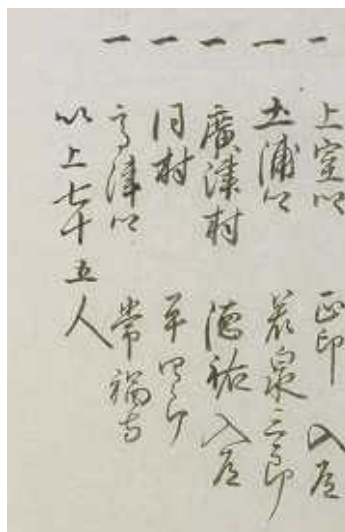 一 上室以 正印入道
一 土浦以 若泉三郎
一 廣津村 徳祐入道
一 同村 平四郎
一 高津以 常福寺
以上七十五人